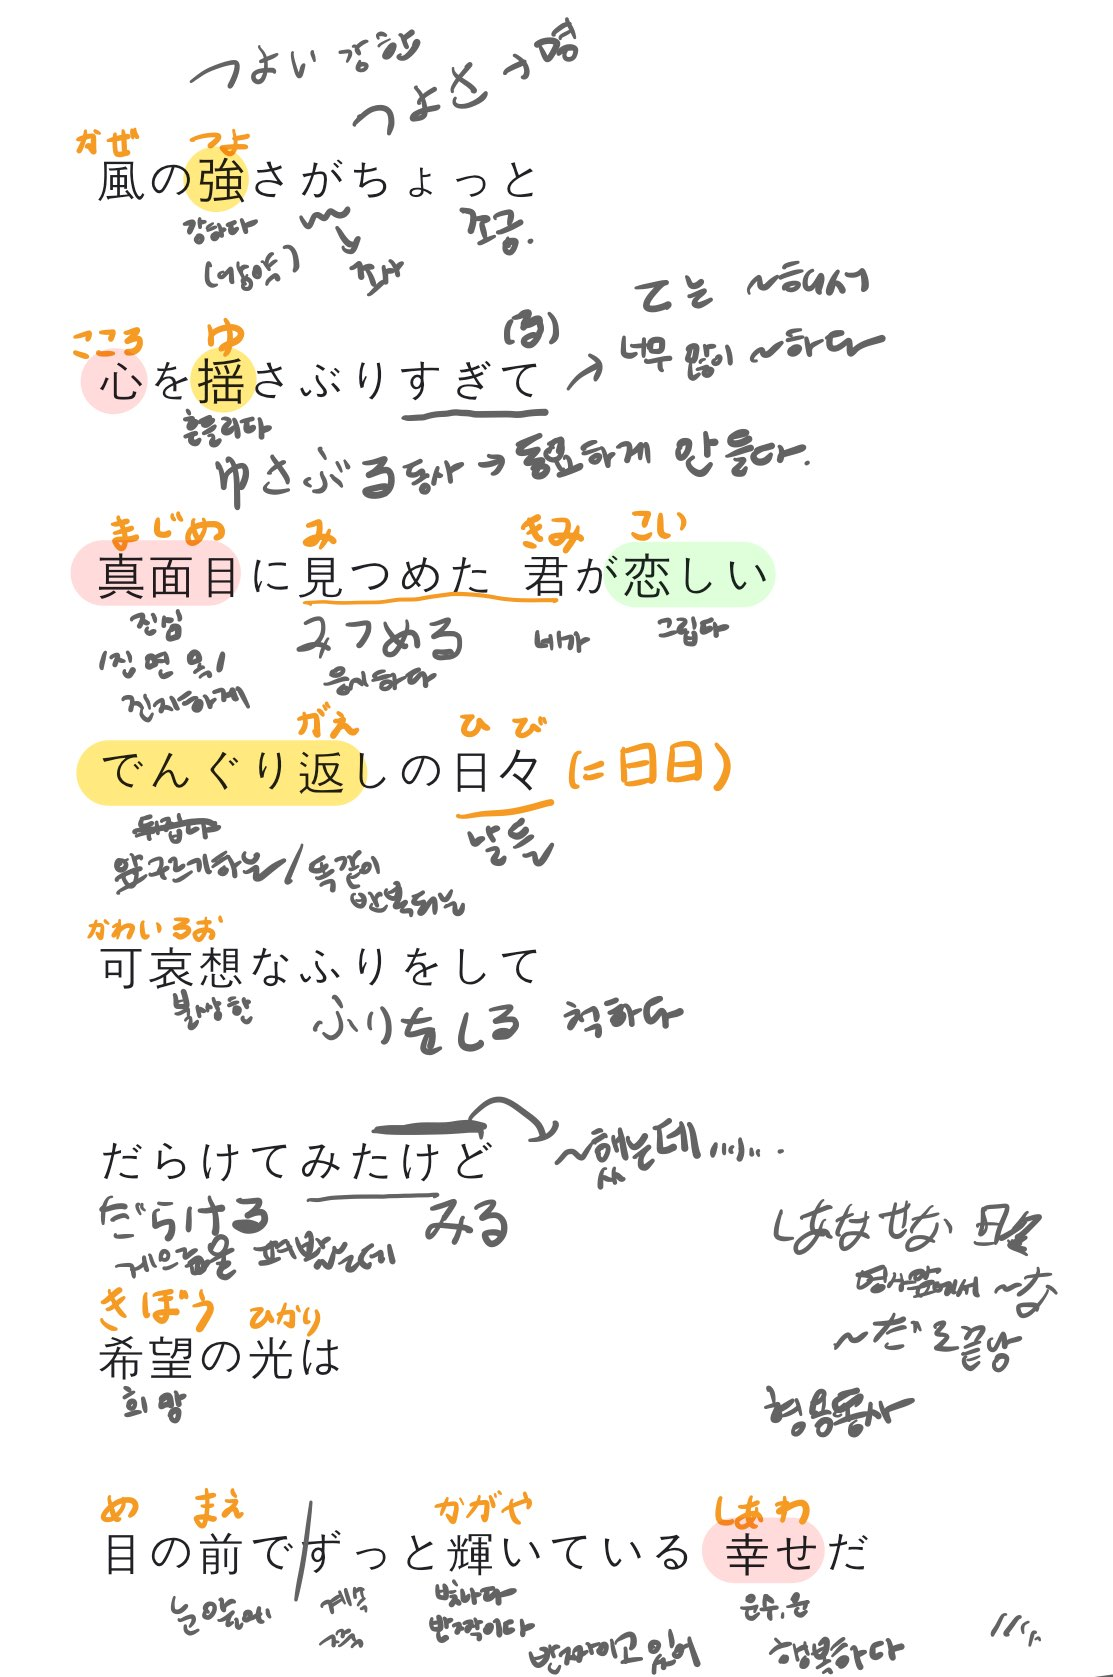 つよい 강한
つよさ → 명
かぜ つよ
風の強さがちょっと
강하다 조금.
(강약) 조사
て는 ~해서
(る)
너무 많이 ~하다
こころ ゆ
心を揺さぶりすぎて
흔들리다
ゆさぶる 동사 → 동요하게 만들다.
まじめ み きみ こい
真面目に見つめた 君が恋しい
진심 みつめる 네가 그립다
응시하다
진지하게
がえ ひび
でんぐり返しの日々 (=日日)
뒤집다 날들
앞구르기하는 / 똑같이
반복되는
かわいろお
可哀想なふりをして
불쌍한 ふりをしる 척하다
だらけてみたけど
~했는데
だらける みる
게으름을 펴봤는데
しあわせな 日
명사앞에서 ~な
~だ로 끝남
형용동사
きぼう ひかり
希望の光は
희망
め まえ かがや しあわ
目の前でずっと輝いている 幸せだ
눈앞에 계속 빛나다 운수, 운
쭉 반짝이다
반짝이고 있어 행복하다